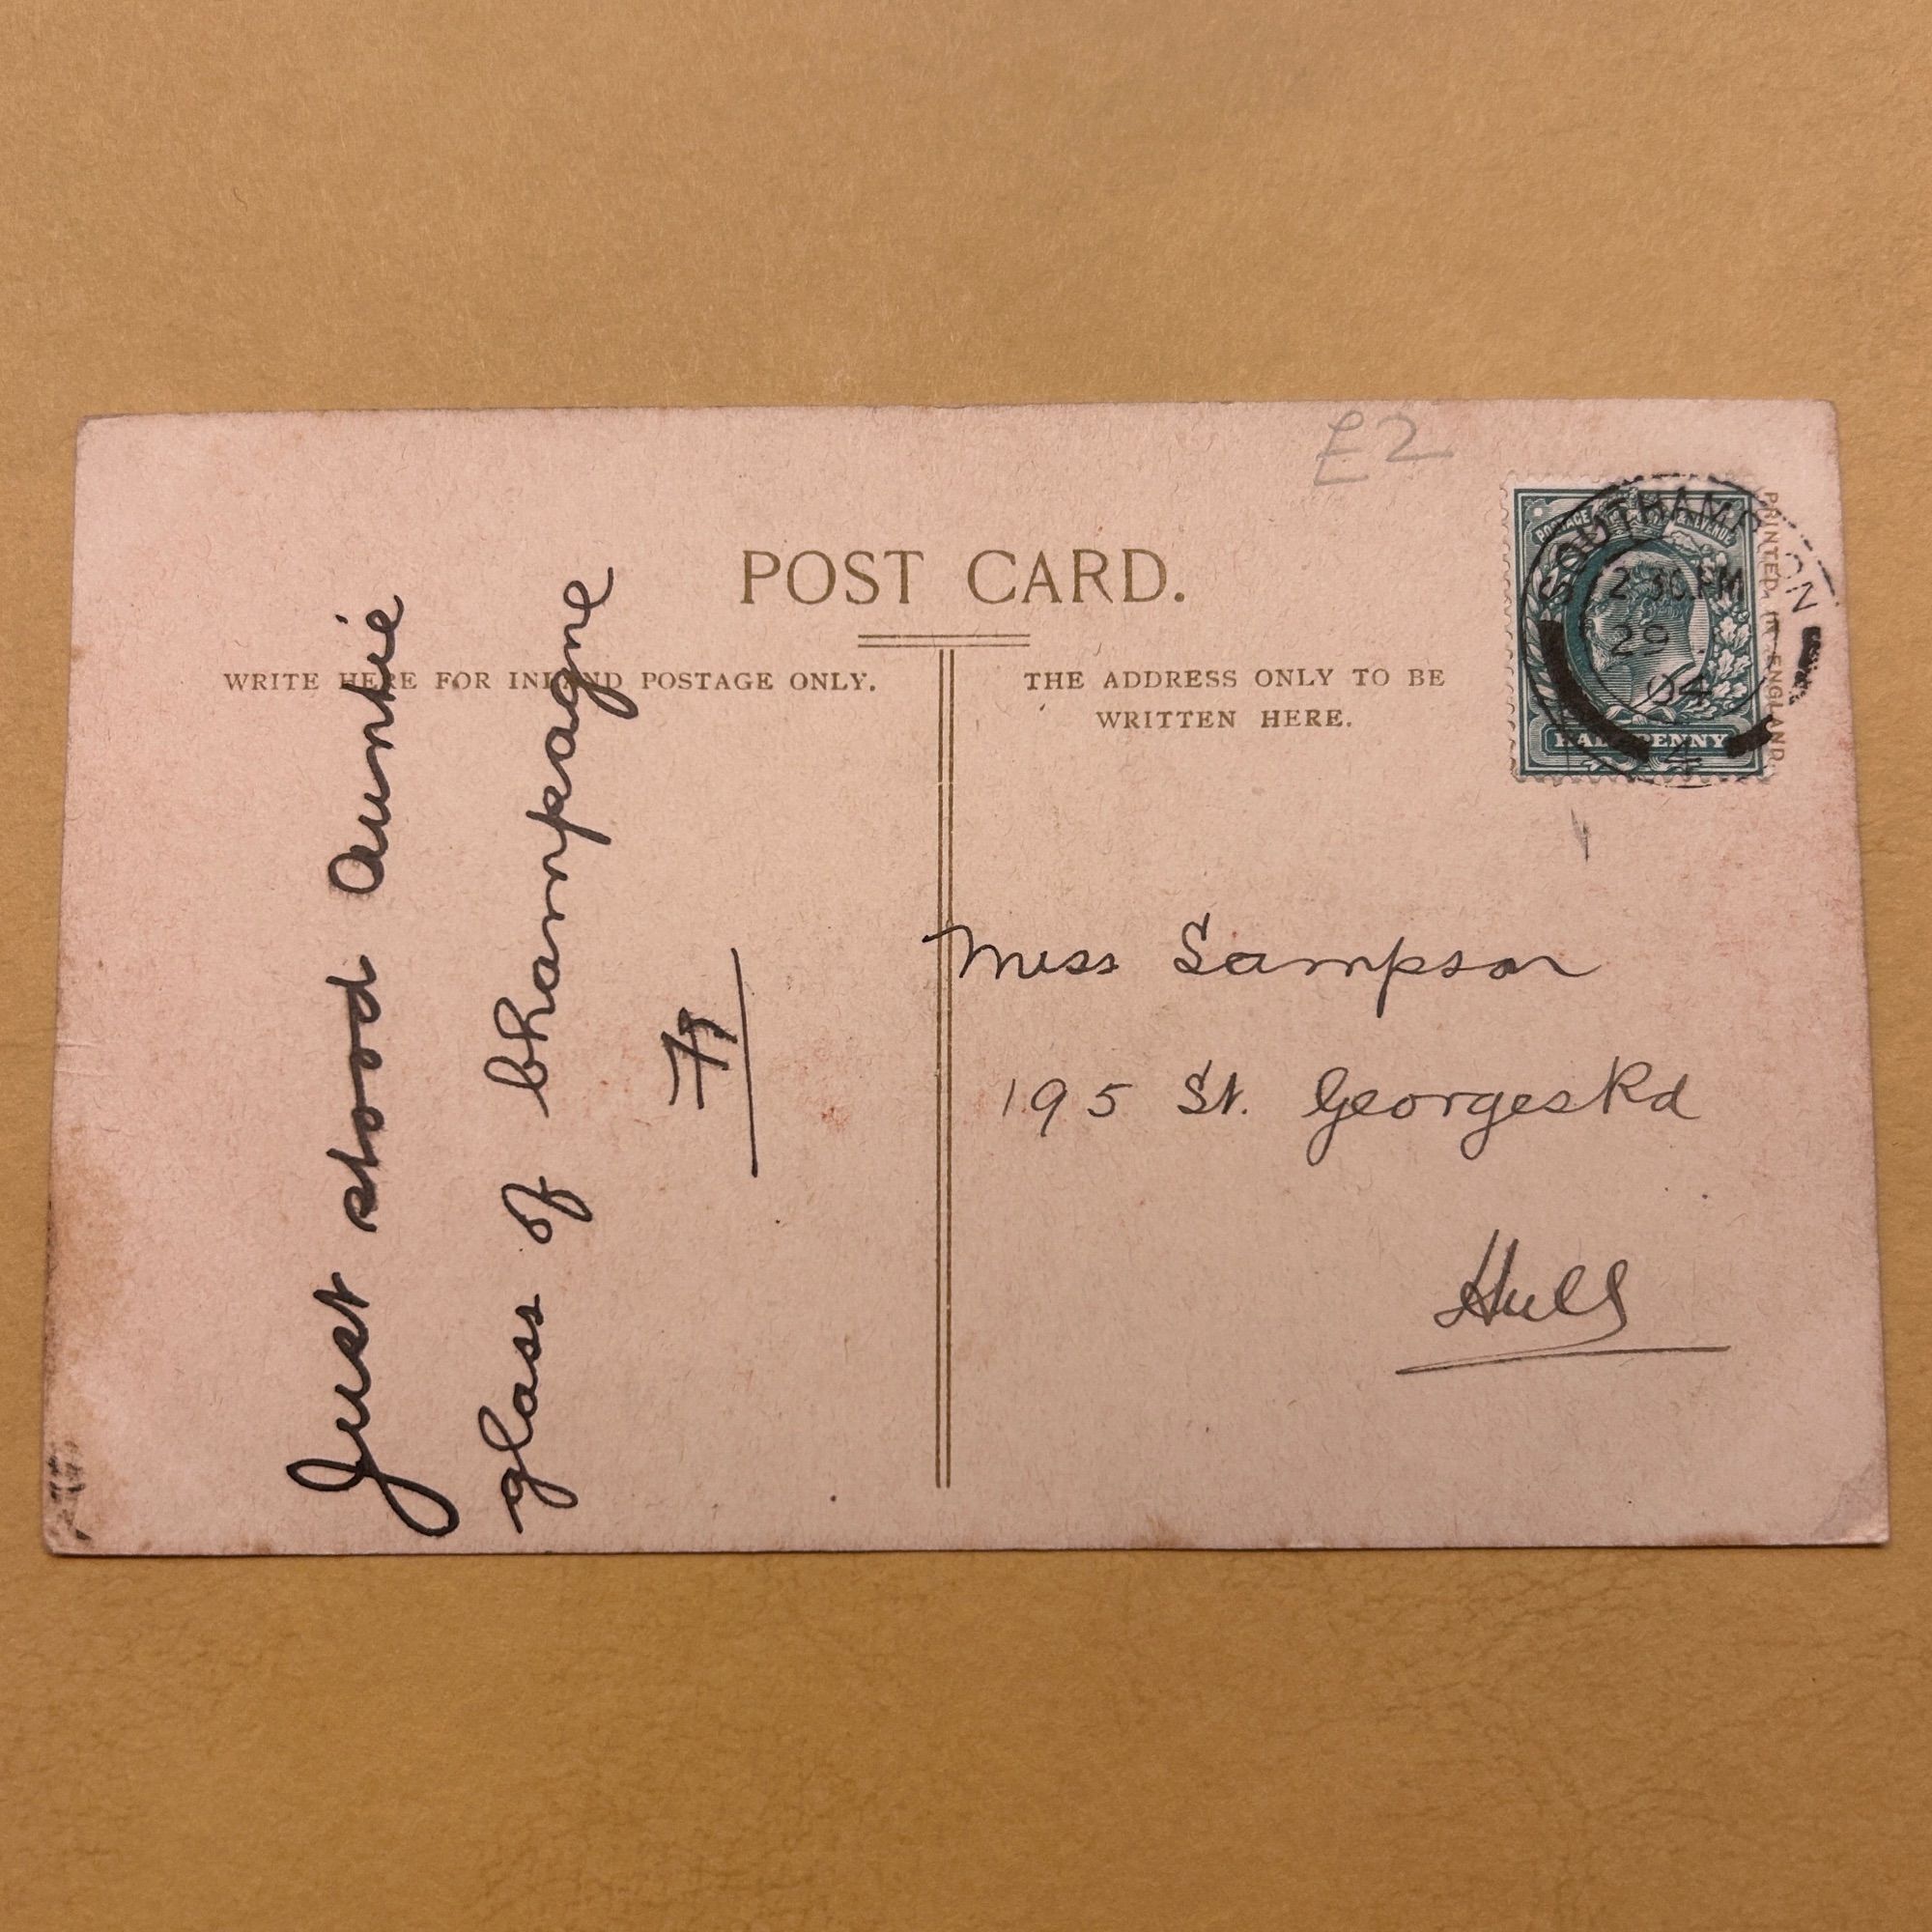 £2
POST CARD.
WRITE HERE FOR INLAND POSTAGE ONLY.
THE ADDRESS ONLY TO BE
WRITTEN HERE.
PRINTED IN ENGLAND
POSTAGE REVENUE
HALFPENNY
SOUTHAMPTON
2 30 PM
29
04
4
Just stood auntie
glass of Champagne
Miss Sampson
195 St. Georges Rd
Hull